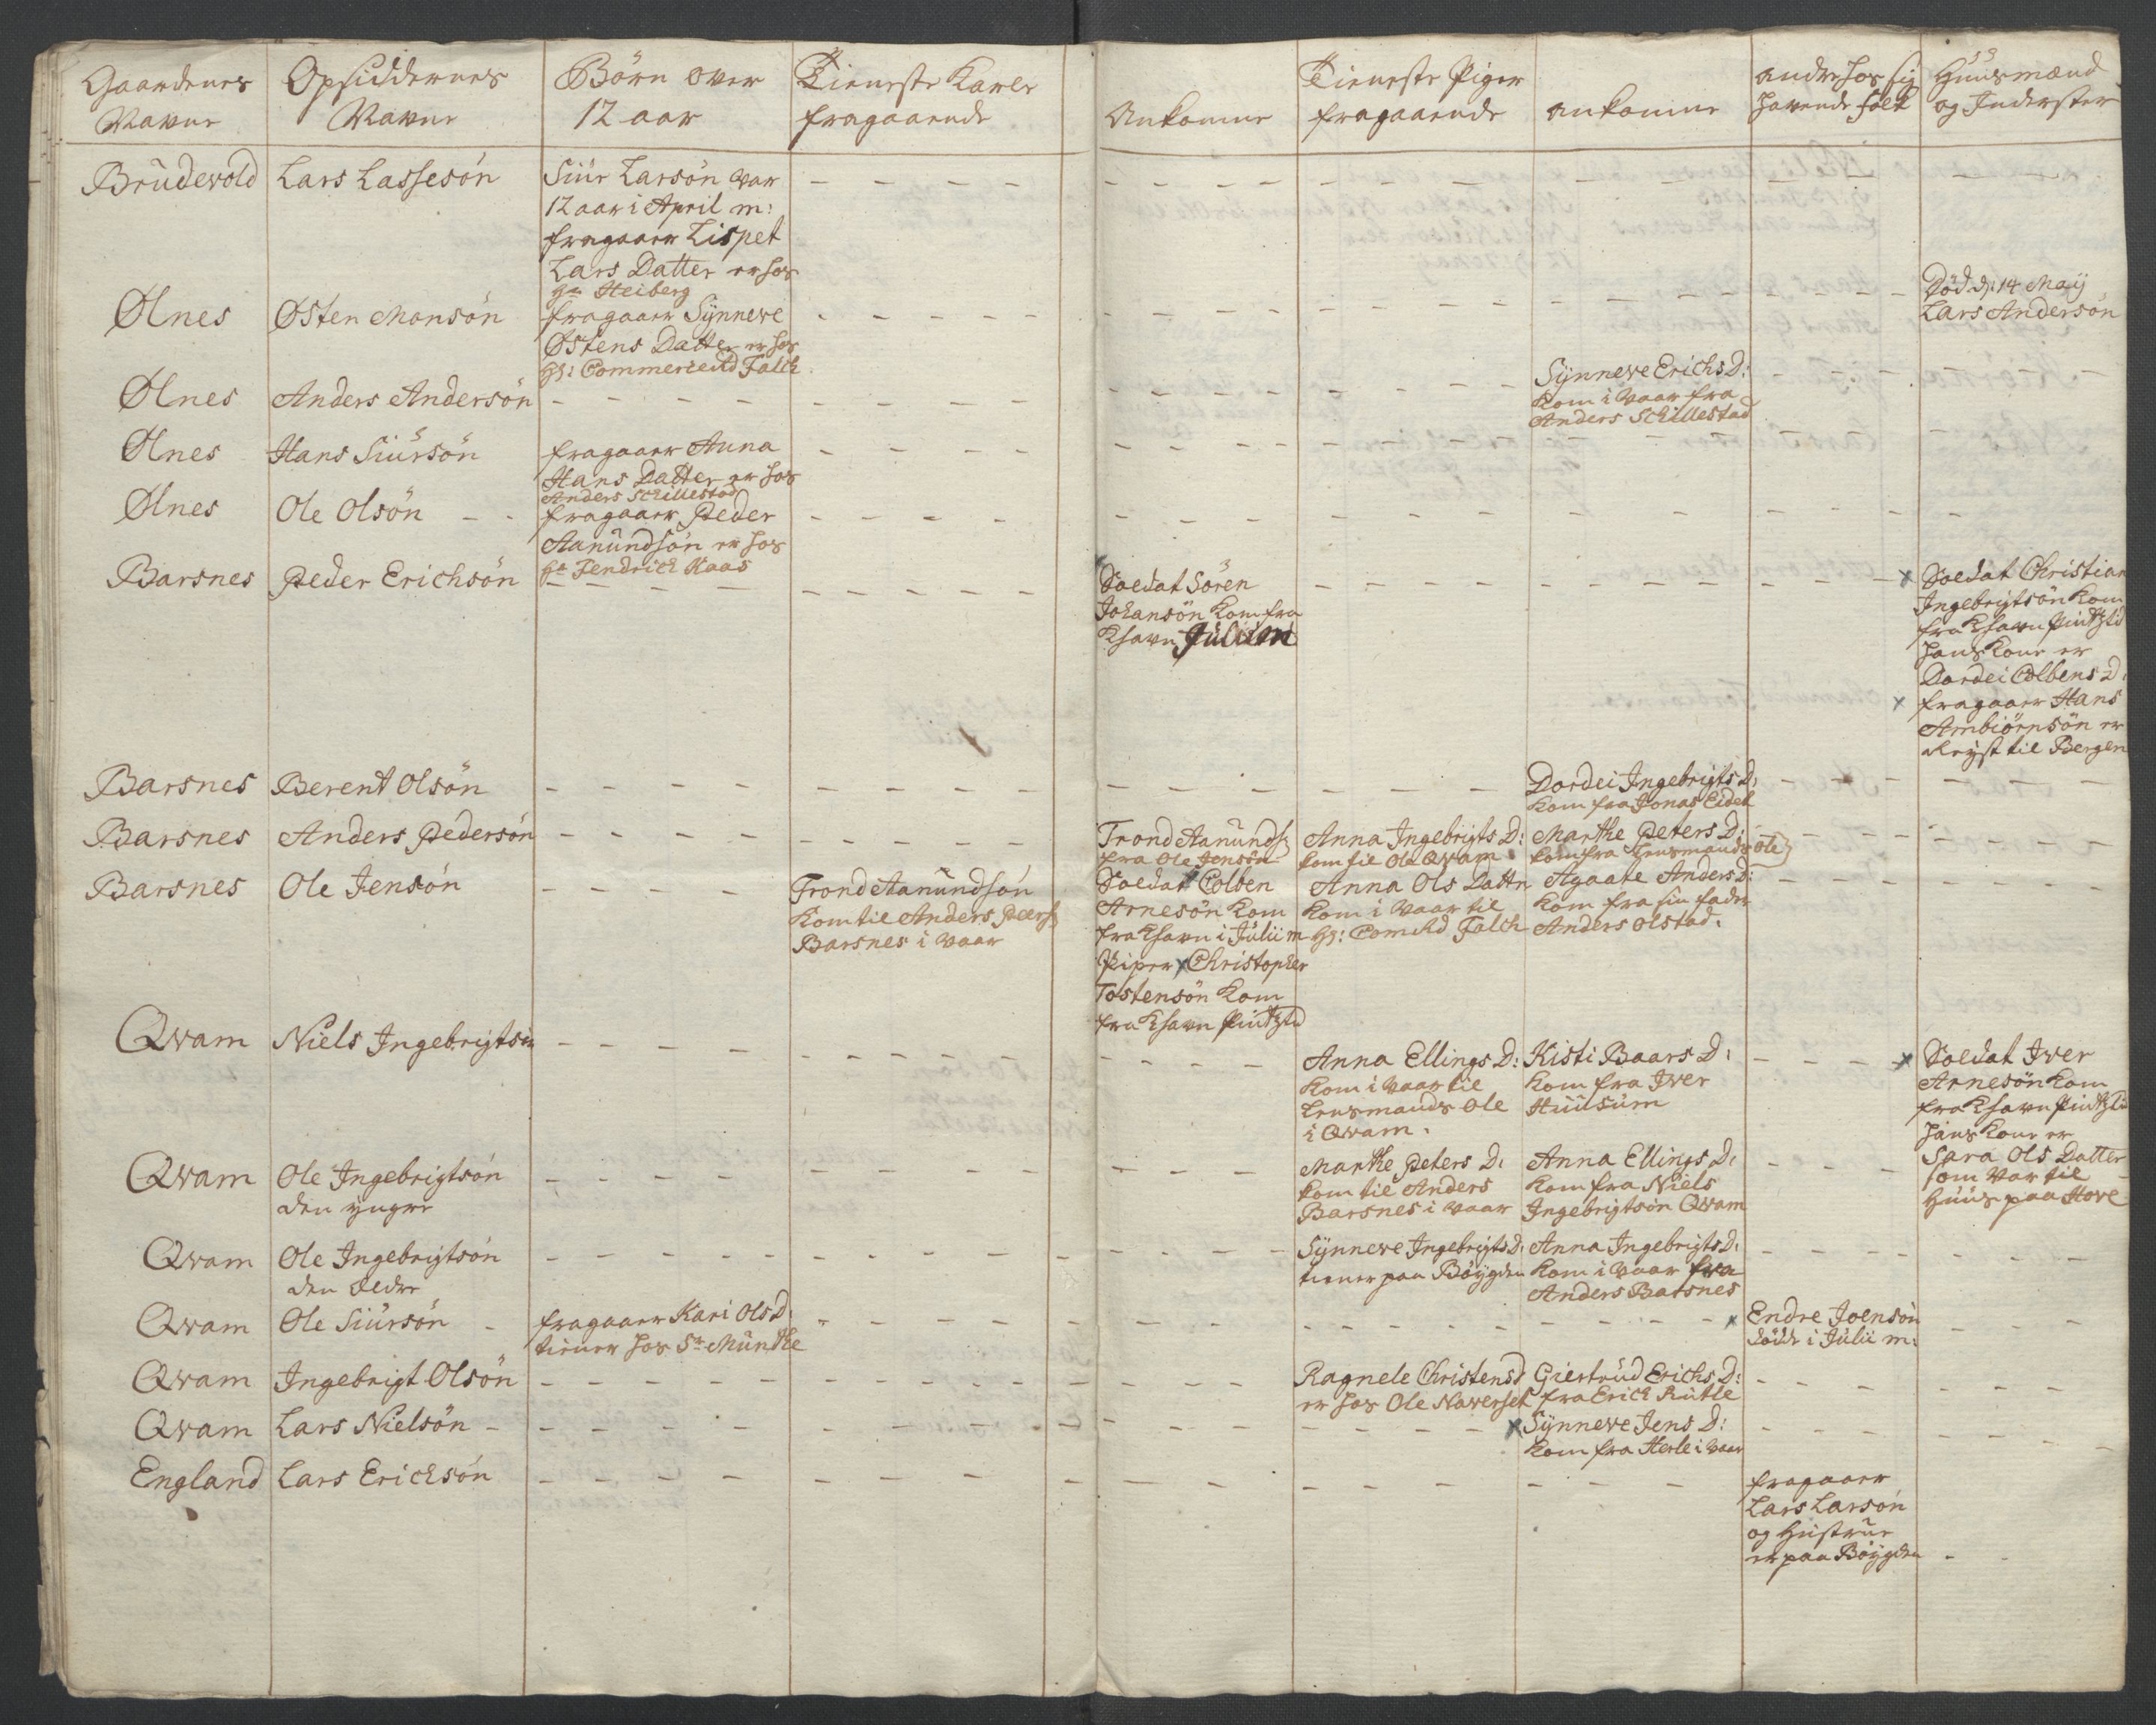 Gaardenes Navne
Opsiddernes Navne
Börn over 12 aar
Tieneste Karle fragaaende
Ankomne
Tieneste Piger fragaaende
ankomne
andre hos sig havende folk
Huusmænd og Inderster
Brudevold
Lars Lassesön
Siur Larsön var
12 aar i April m:
fragaaer Lispet
Lars Datter er hos
Hr Heiberg
Ølnes
Østen Monsön
fragaaer Synneve
Østens Datter er hos
Hr: Commerceraad Falch
Död d: 14 Maij
Lars Andersön
Ølnes
Anders Andersön
Synneve Erichs D:
kom i Vaar fra
Anders Schillestad
Ølnes
Hans Siursön
fragaaer Anna
Hans Datter er hos
Anders Schillestad
Ølnes
Ole Olsön
fragaaer Peder
Aanundsön er hos
Hr Fendrick Kaas
Barsnes
Peder Erichsön
Soldat Sören
Johansön kom fra
Khavn Julii m
Soldat Christian
Ingebrigtsön kom
fra Khavn Pintztid
hans kone er
Dordei Colbens D:
fragaaer Hans
Ambiörnsön er
reyst til Bergen
Barsnes
Berent Olsön
Dordei Ingebrigts D:
kom fra Jonas Eidet
Barsnes
Anders Pedersön
Trond Aanunds:
fra Ole Jensön
Anna Ingebrigts D:
kom til Ole Qvam
Marthe Peters D:
kom fra Lensmands Ole
Barsnes
Ole Jensön
Trond Aanundsön
kom til Anders Peers:
Barsnes i Vaar
Soldat Colben
Arnesön kom
fra Khavn i Julii m
Piper Christopher
Tostensön kom
fra Khavn Pintztid
Anna Ols Datter
kom i Vaar til
Hr: Comrd Falch
Agaate Anders D:
kom fra sin fader
Anders Olstad.
Qvam
Niels Ingebrigtsön
Anna Ellings D:
kom i Vaar til
Lensmands Ole
i Qvam.
Kisti Baars D:
kom fra Iver
Huusum
Soldat Iver
Arnesön kom
fra Khavn Pintztid
hans kone er
Sara Ols Datter
som var til
Huus paa Hove
Qvam
Ole Ingebrigtsön
den yngre
Marthe Peters D:
kom til Anders
Barsnes i Vaar
Anna Ellings D:
kom fra Niels
Ingebrigtsön Qvam
Qvam
Ole Ingebrigtsön
den Ældre
Synneve Ingebrigts D:
tiener paa Böygden
Anna Ingebrigts D:
kom i Vaar fra
Anders Barsnes
Qvam
Ole Siursön
fragaaer Kari Ols D:
tiener hos Sr Munthe
Endre Joensön
döde i Julii m:
Qvam
Ingebrigt Olsön
Ragnele Christens D
er hos Ole Naverset
Giertrud Erichs D:
fra Erich Rutle
Qvam
Lars Nielsön
Synneve Jens D:
kom fra Herle i Vaar
England
Lars Ericksön
fragaaer
Lars Larsön
og Hustrue
er paa Böygden